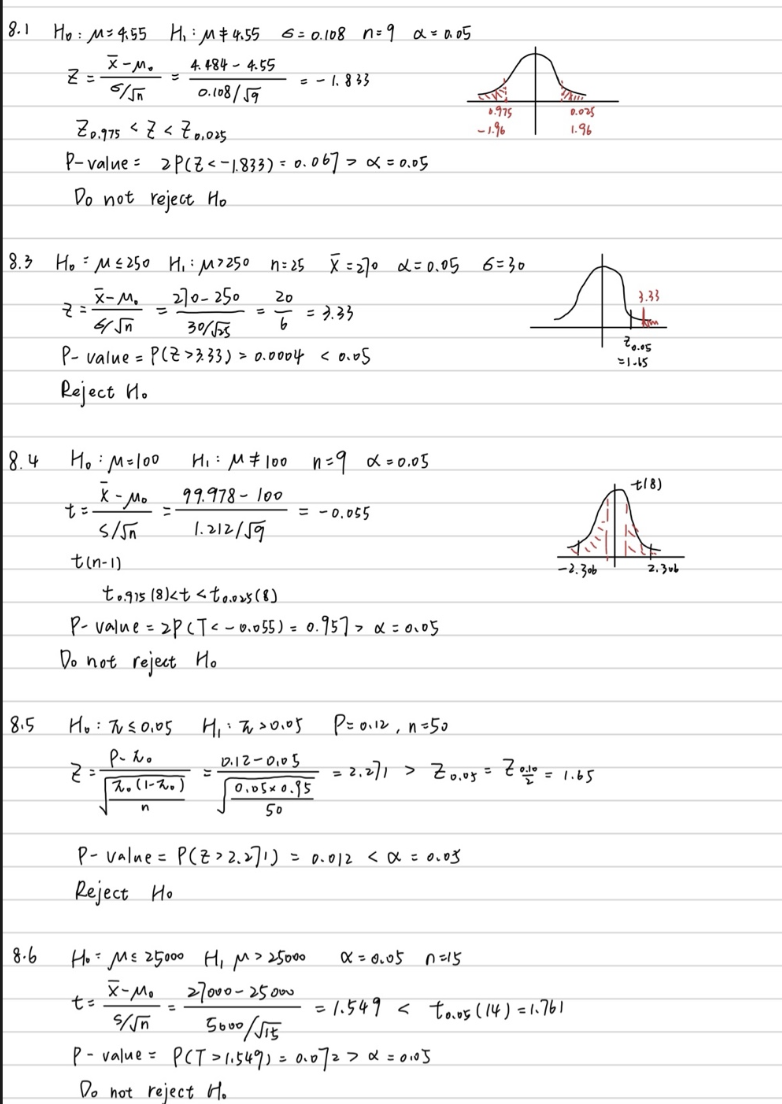 8.1 H₀: μ=4.55 H₁: μ≠4.55 σ=0.108 n=9 α=0.05
Z = (x̄-μ₀)/(σ/√n) = (4.484-4.55)/(0.108/√9) = -1.833
0.975 0.025
-1.96 1.96
Z₀.₉₇₅ < Z < Z₀.₀₂₅
P-value = 2P(Z<-1.833) = 0.067 > α=0.05
Do not reject H₀
8.3 H₀: μ≤250 H₁: μ>250 n=25 x̄=270 α=0.05 σ=30
Z = (x̄-μ₀)/(σ/√n) = (270-250)/(30/√25) = 20/6 = 3.33
3.33
Z₀.₀₅
=1.65
P-value = P(Z>3.33) = 0.0004 < 0.05
Reject H₀
8.4 H₀: μ=100 H₁: μ≠100 n=9 α=0.05
t = (x̄-μ₀)/(s/√n) = (99.978-100)/(1.212/√9) = -0.055
t(8)
-2.306 2.306
t(n-1)
t₀.₉₇₅(8)<t<t₀.₀₂₅(8)
P-value = 2P(T<-0.055) = 0.957 > α=0.05
Do not reject H₀
8.5 H₀: π≤0.05 H₁: π>0.05 P=0.12, n=50
Z = (P-π₀)/√(π₀(1-π₀)/n) = (0.12-0.05)/√(0.05×0.95/50) = 2.271 > Z₀.₀₅ = Z 0.10/2 = 1.65
P-value = P(Z>2.271) = 0.012 < α = 0.05
Reject H₀
8.6 H₀: μ≤25000 H₁ μ>25000 α=0.05 n=15
t = (x̄-μ₀)/(s/√n) = (27000-25000)/(5000/√15) = 1.549 < t₀.₀₅(14)=1.761
P-value = P(T>1.549) = 0.072 > α=0.05
Do not reject H₀